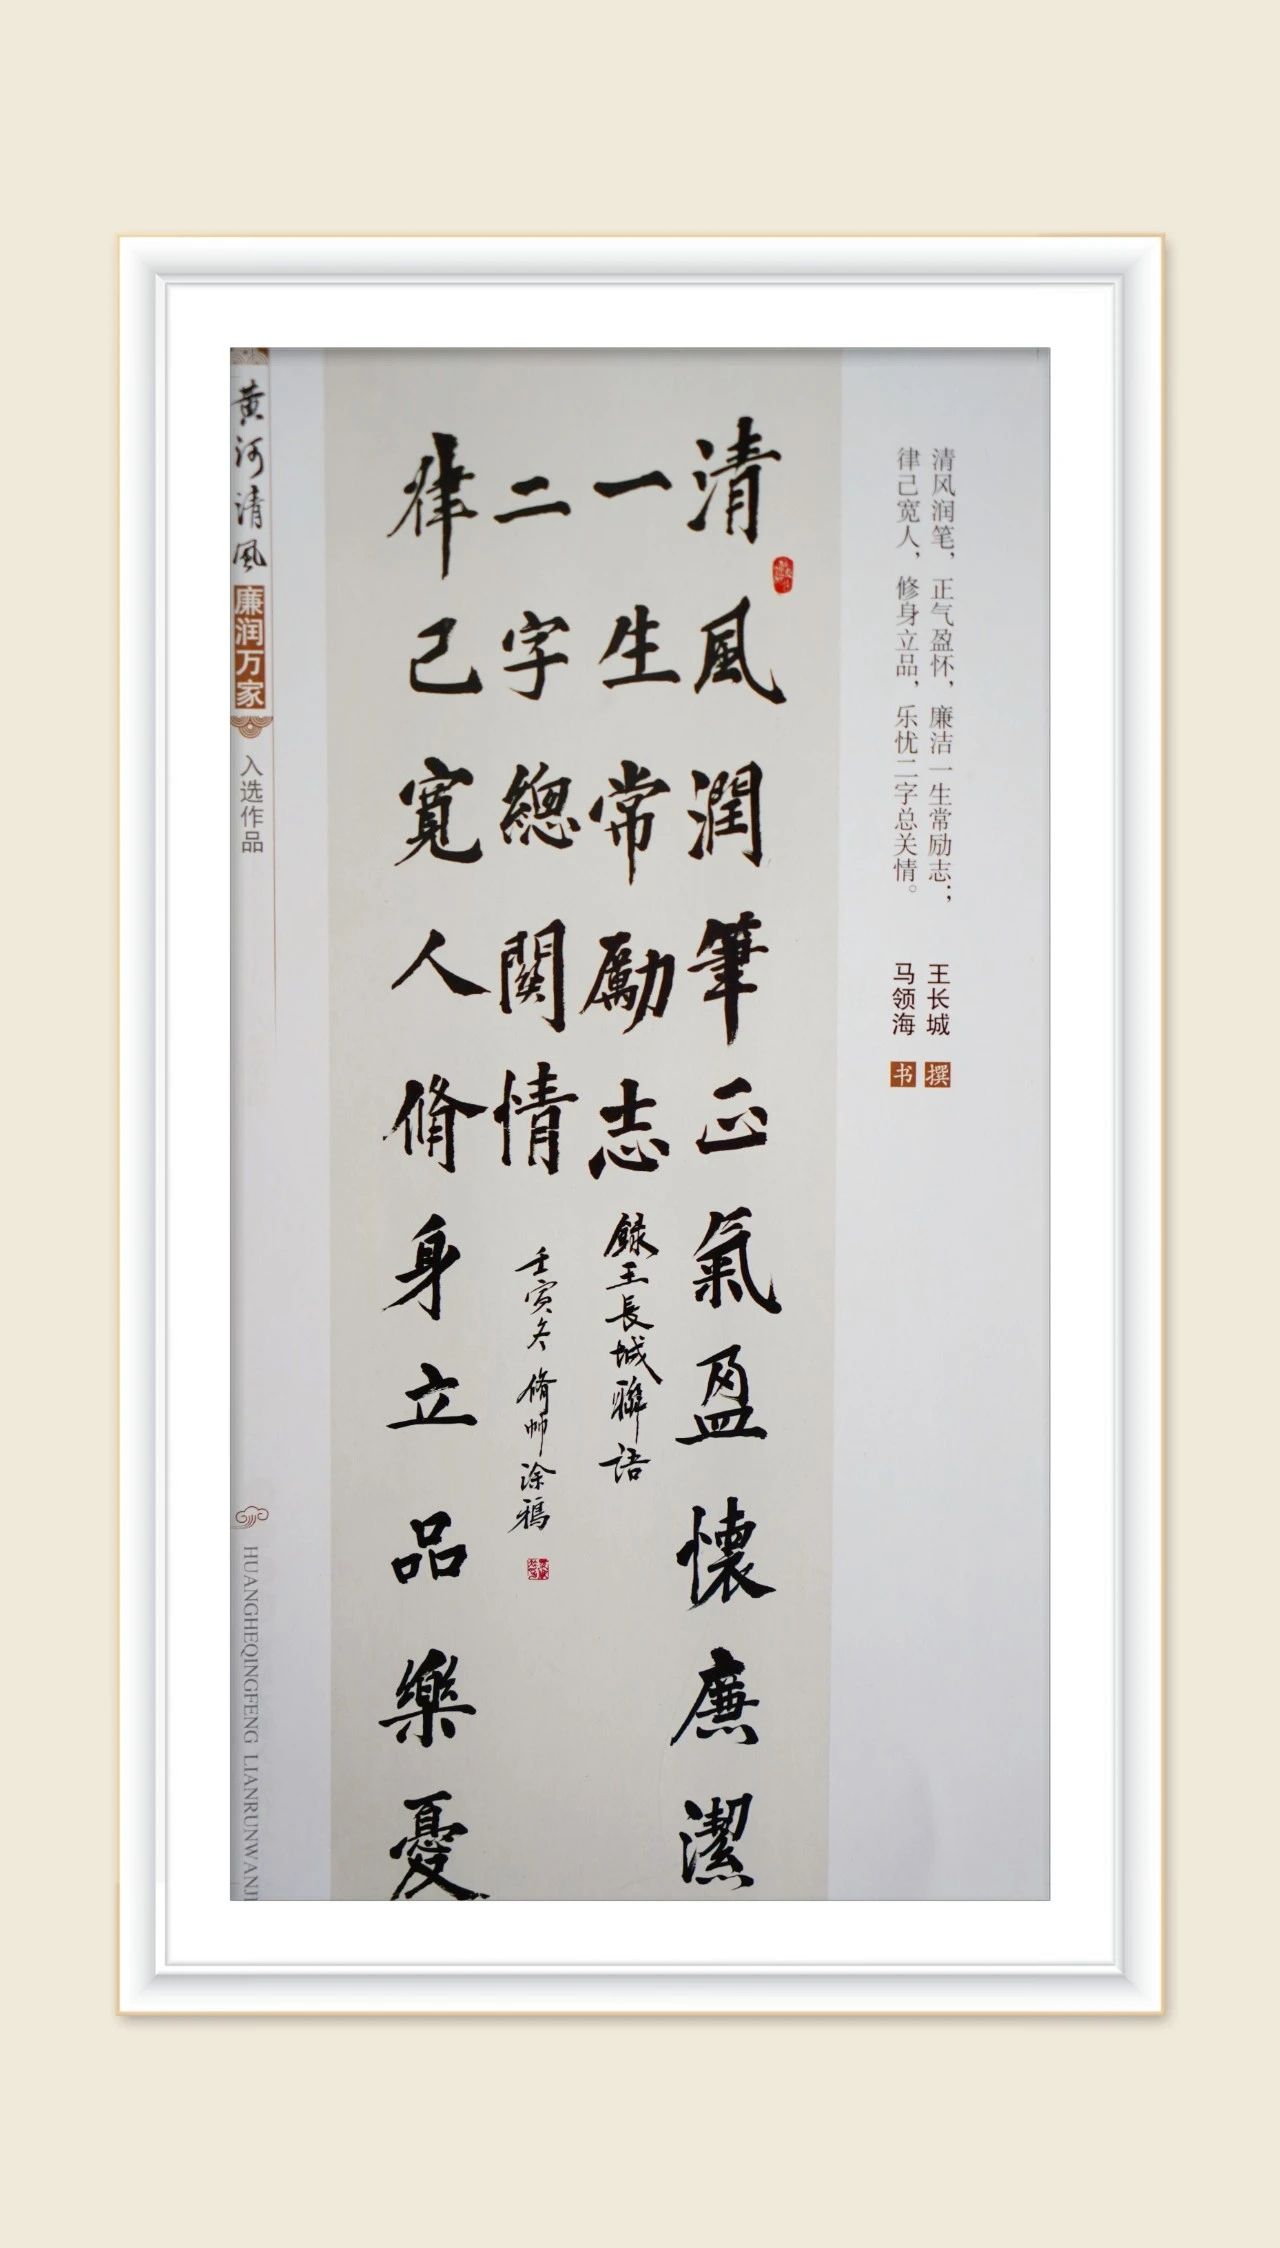 清风润笔，正气盈怀，廉洁一生常励志；
律己宽人，修身立品，乐忧二字总关情。
王长城 撰
马领海 书
清風潤筆正氣盈懷廉潔
一生常勵志
錄王長城聯語
律己寬人脩身立品樂憂
二字總關情
壬寅冬脩帅涂鴉
黄河清風
廉润万家
入选作品
HUANGHEQINGFENG LIANRUNWANJI